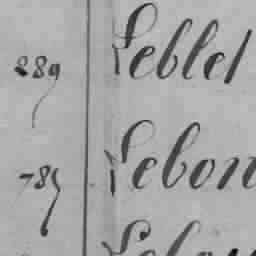 289 Leblel
789 Lebon